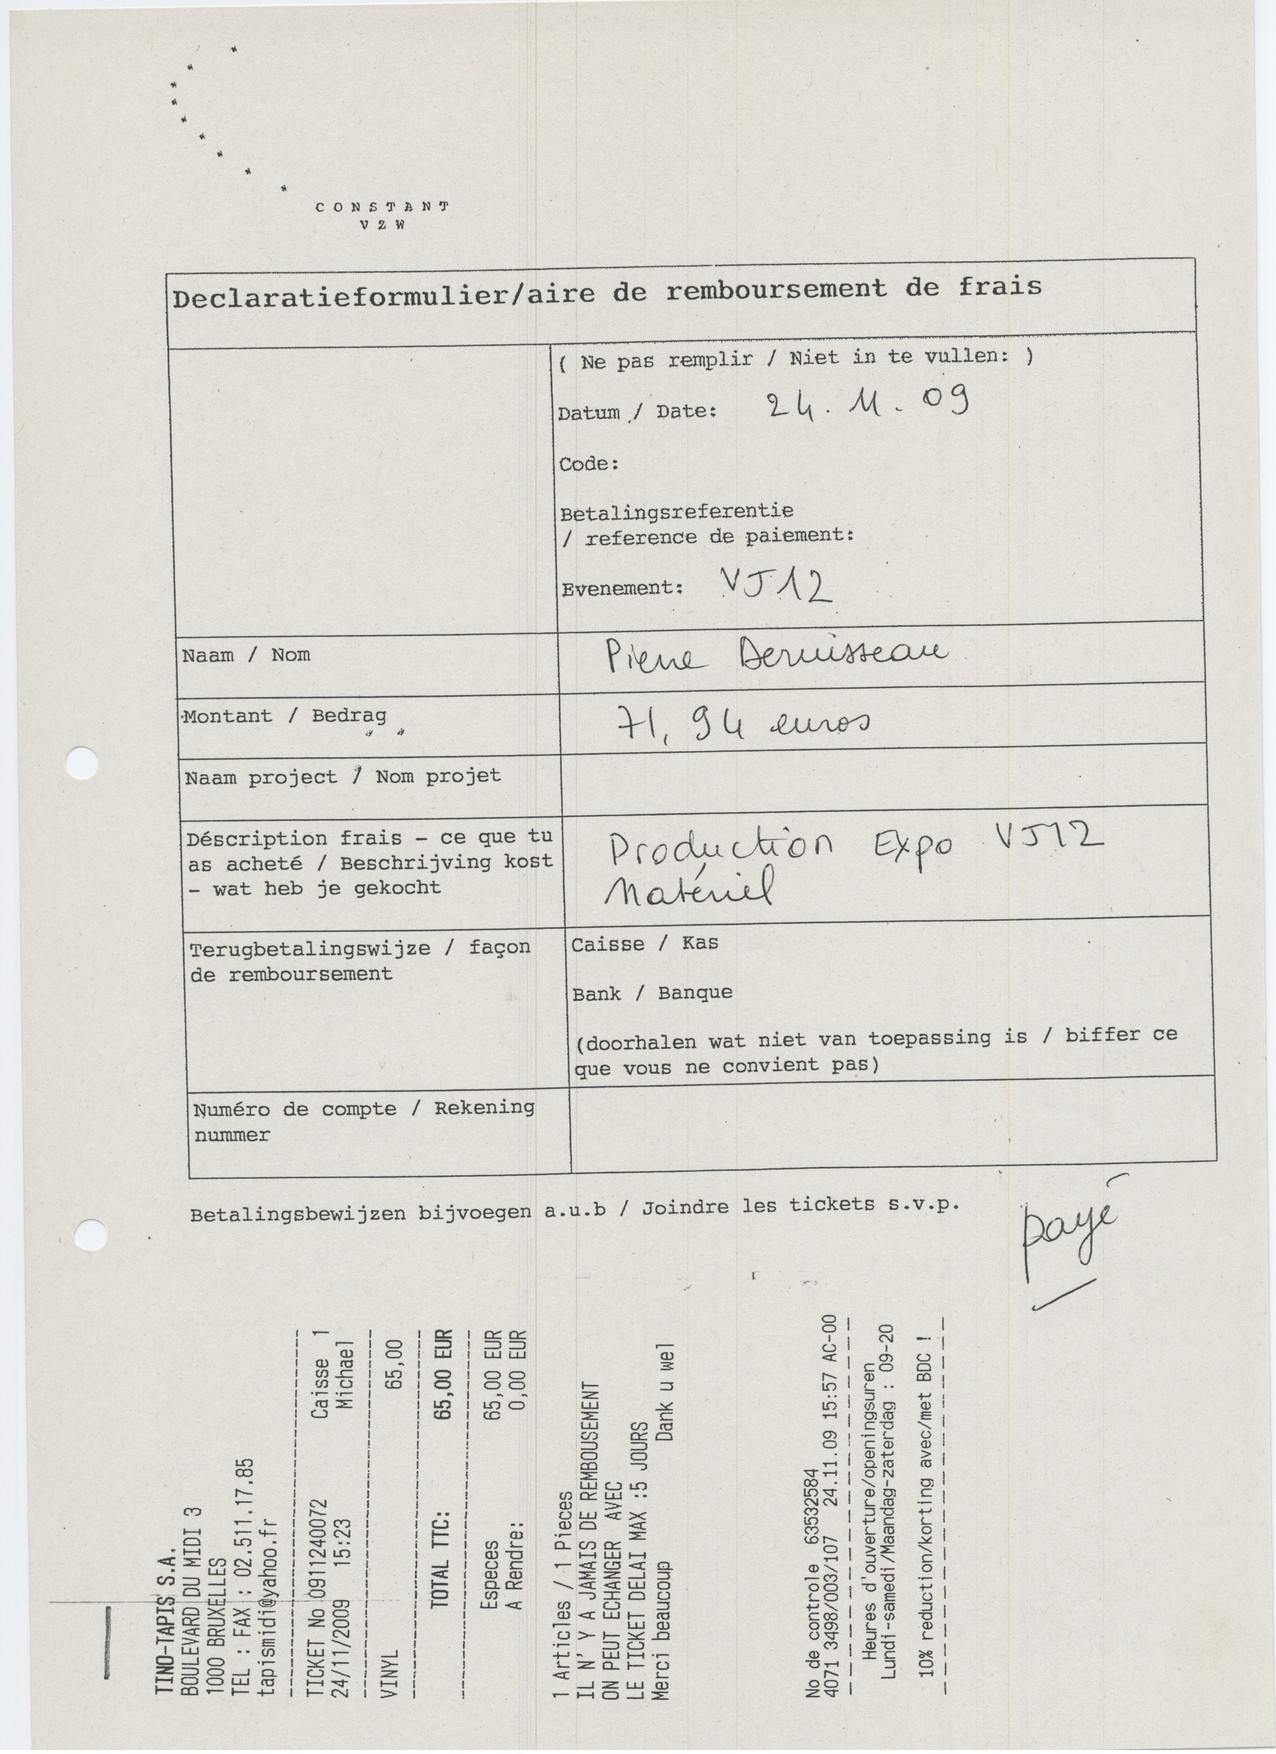 CONSTANT
VZW
Declaratieformulier/aire de remboursement de frais
( Ne pas remplir / Niet in te vullen: )
Datum / Date: 24.11.09
Code:
Betalingsreferentie
/ reference de paiement:
Evenement: VJ12
Naam / Nom
Pierre Deruisseau
Montant / Bedrag
71,94 euros
Naam project / Nom projet
Déscription frais - ce que tu
as acheté / Beschrijving kost
- wat heb je gekocht
Production Expo VJ12
Matériel
Terugbetalingswijze / façon
de remboursement
Caisse / Kas
Bank / Banque
(doorhalen wat niet van toepassing is / biffer ce
que vous ne convient pas)
Numéro de compte / Rekening
nummer
Betalingsbewijzen bijvoegen a.u.b / Joindre les tickets s.v.p.
payé
TINO-TAPIS S.A.
BOULEVARD DU MIDI 3
1000 BRUXELLES
TEL : FAX : 02.511.17.85
tapismidi@yahoo.fr
TICKET No 0911240072 Caisse 1
24/11/2009 15:23 Michael
VINYL 65,00
TOTAL TTC: 65,00 EUR
Especes 65,00 EUR
A Rendre: 0,00 EUR
1 Articles / 1 Pieces
IL N' Y A JAMAIS DE REMBOUSEMENT
ON PEUT ECHANGER AVEC
LE TICKET DELAI MAX :5 JOURS
Merci beaucoup Dank u wel
No de controle 63532584
4071 3498/003/107 24.11.09 15:57 AC-00
Heures d'ouverture/openingsuren
Lundi-samedi/Maandag-zaterdag : 09-20
10% reduction/korting avec/met BDC !